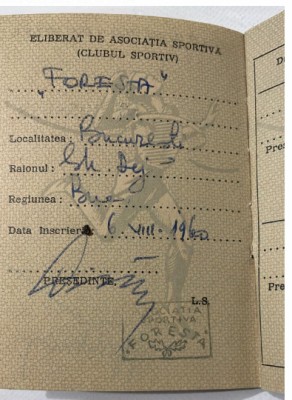 ELIBERAT DE ASOCIAȚIA SPORTIVĂ
(CLUBUL SPORTIV)
„FORESTA"
Localitatea: București
Raionul: Gh. Dej
Regiunea: Buc
Data înscrierii: 6. VIII-1960
PREȘEDINTE,
L.S.
ASOCIAȚIA
SPORTIVĂ
FORESTA
D
Pres